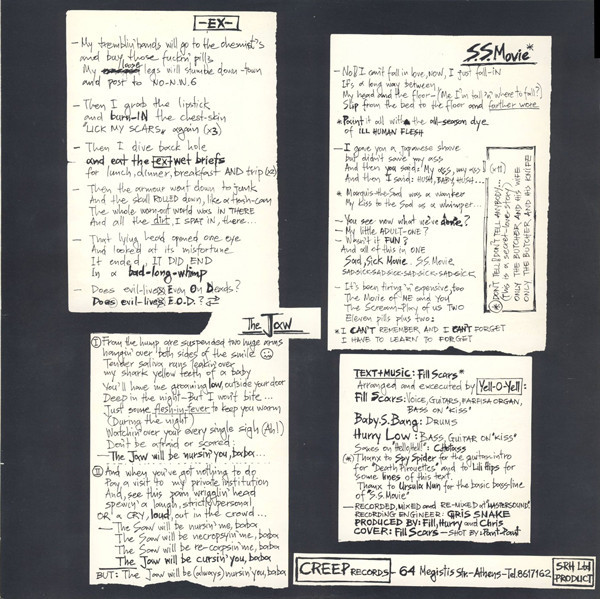 -EX-
- My tremblin' hands will go to the chemist's
and buy those fuckin' pills
My loose legs will stumble down-town
and post to NO-N.N.6
- Then I grab the lipstick
and burn-IN the chest-skin
"LICK MY SCARS" again (x3)
- Then I dive back hole
and eat the ex-wet briefs
for lunch, dinner, breakfast AND trip (x2)
- Then the armour went down to junk
And the skull ROLLED down, like a trash-can
The whole worn-out world was IN THERE
And all the dirt, I SPAT IN, there...
- That lying head opened one eye
And looked at its misfortune
It ended IT DID END
In a bad-long-whimp
- Does evil-lives Even On Deads?
Does evil-lives E.O.D.?
The Jaw
I From the hump are suspended two huge arms
hangin' over both sides of the smile
Tender saliva runs leakin' over
my shark yellow teeth of a baby
You'll have me groaning low, outside your door
Deep in the night - But I won't bite...
Just some flesh-in-fever to keep you warm
(During the night)
Watchin' over your every single sigh (Ah!)
Don't be afraid or scared:
- The Jaw will be nursin' you, baba...
II And when you've got nothing to do
Pay a visit to my private institution
And, see this pain wrigglin' head
spewin' a laugh, strictly personal
OR a CRY, loud, out in the crowd...
- The Saw will be nursin' me, baba
The Saw will be necropsyin' me, baba
The Saw will be re-corpsin' me, baba
The Jaw will be cursin' you, baba
BUT: The Jaw will be (always) nursin' you, baba
S.S. Movie*
- No!! I can't fall in love, NOW, I just fall-IN
It's a long way between
My head and the floor - (Me I'm tall 'n' where to fall?)
Slip from the bed to the floor and farther more
* Paint it all with the all-season dye
of ILL HUMAN FLESH
- I gave you a japanese shove
but didn't save you ass
And then you said: My ass, my ass
And then I said: HUSH, BABY HUSH...
* Marquis-the-Sad was a wanker
My kiss to the Sad as a whimper...
- You see now what we've done?
- My little ADULT-ONE?
- Wasn't it FUN?
And all of this in ONE
Sad, Sick Movie. S.S. Movie
SADSICK-SADSICK-SADSICK-SADSICK
- It's been tiring 'n' expensive, too
The Movie of ME and You
The Scream-Play of us Two
Eleven pills plus two:
* I CAN'T REMEMBER AND I CAN'T FORGET
I HAVE TO LEARN TO FORGET
(x11)
* DON'T TELL! DON'T TELL ANYBODY...
(This is a secret-love-story)
ONLY THE BUTCHER, AND HIS WIFE
ONLY THE BUTCHER, AND HIS KNIFE!
TEXT+MUSIC: Fill Scars*
Arranged and excecuted by Yell-O-Yell:
Fill Scars: VOICE, GUITARS, FARFISA ORGAN,
BASS ON "KISS"
Baby.S.Bang: DRUMS
Hurry Low: BASS, GUITAR ON "KISS"
Saxes on "Hello, Hell":
(*) Thanx to Spy Spider for the guitar intro
for "Death Pirouettes" and to Lili Pips for
some lines of this text.
Thanx to Ursula Nun for the basic bass-line
of "S.S. Movie"
- RECORDED, MIXED and RE-MIXED at "MASTERSOUND"
RECORDING ENGINEER: CHRIS SNAKE
PRODUCED BY: Fill, Hurry and Chris
COVER: Fill Scars - SHOT BY: Pant-Pant
CREEP RECORDS - 64 Megistis Str. - Athens - Tel. 8617162
SRH Ltd
PRODUCT